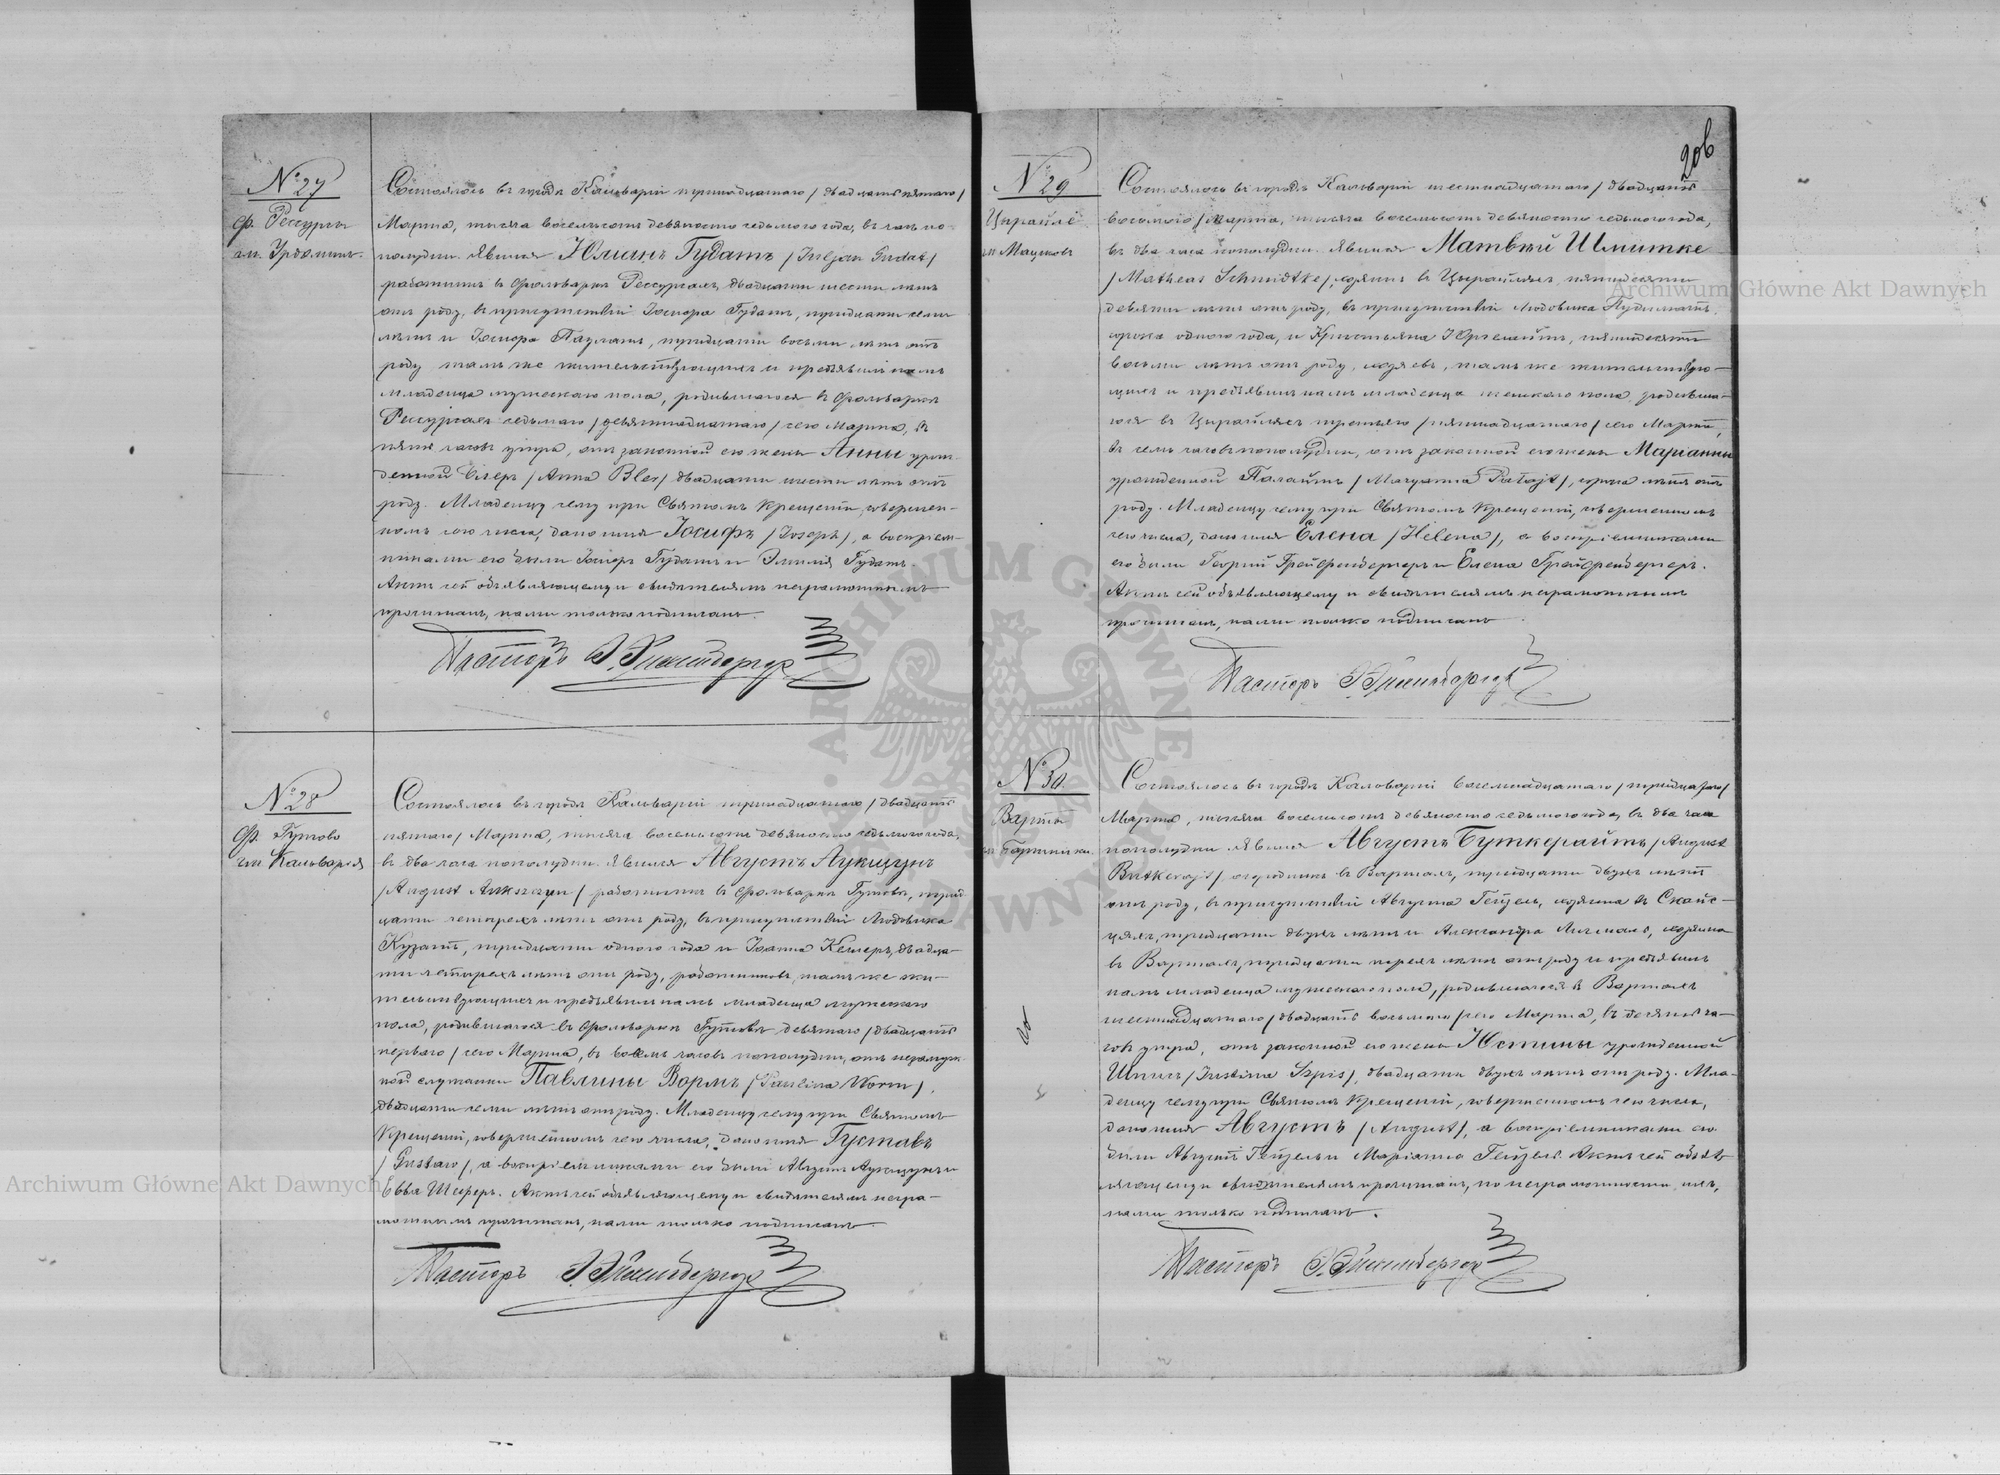 № 27
ф. Рессурги
гм. Удрмин.
Состоялось въ городѣ Кальваріи тринадцатаго /двадцать пятаго/
Марта, тысяча восемьсотъ девяносто седьмого года, въ часъ по-
полудни. Явился Юліанъ Гудатъ /Juljan Gudat/
работникъ въ фольваркѣ Рессургахъ, двадцати шести лѣтъ
отъ роду, въ присутствіи Іосифа Гудатъ, тридцати семи
лѣтъ и Іосифа Паулатъ, тридцати восьми лѣтъ отъ
роду тамъ же жительствующихъ и предъявилъ намъ
младенца мужескаго пола, родившагося въ фольваркѣ
Рессургахъ седьмаго /девятнадцатаго/ сего Марта, въ
пять часовъ утра, отъ законной его жены Анны урож-
денной Блеръ /Anna Bler/ двадцати шести лѣтъ отъ
роду. Младенцу сему при Святомъ Крещеніи, совершен-
номъ сего числа, дано имя Іосифъ /Joseph/, а воспріем-
никами его были Іосифъ Гудатъ и Эмилія Гудатъ.
Актъ сей объявляющему и свидѣтелямъ неграмотнымъ
прочитанъ, нами только подписанъ.
Пасторъ
№ 28
ф. Гутово
гм. Кальварія
Состоялось въ городѣ Кальваріи тринадцатаго /двадцать
пятаго/ Марта, тысяча восемьсотъ девяносто седьмого года,
въ два часа пополудни. Явился Августъ Аукщунъ
/August Aukszun/ работникъ въ фольваркѣ Гутовѣ, трид-
цати четырехъ лѣтъ отъ роду, въ присутствіи Людовика
Кузатъ, тридцати одного года и Іоанна Кемеръ, двадца-
ти четырехъ лѣтъ отъ роду, работниковъ, тамъ же жи-
тельствующихъ и предъявилъ намъ младенца мужескаго
пола, родившагося въ фольваркѣ Гутовѣ девятаго /двадцать
перваго/ сего Марта, въ восемь часовъ пополудни, отъ незамуж-
ной служанки Павлины Вормъ /Paulina Worm/,
двадцати семи лѣтъ отъ роду. Младенцу сему при Святомъ
Крещеніи, совершенномъ сего числа, дано имя Густавъ
/Gustaw/, а воспріемниками его были Августъ Аукщунъ и
Ева Шеферъ. Актъ сей объявляющему и свидѣтелямъ негра-
мотнымъ прочитанъ, нами только подписанъ.
Пасторъ
206
№ 29
Цирайле
Состоялось въ городѣ Кальваріи шестнадцатаго /двадцать
восьмого/ Марта, тысяча восемьсотъ девяносто седьмого года,
въ два часа пополудни. Явился Матвѣй Шмитке
/Matheas Schmidtke/, хозяинъ въ Цирайляхъ, пятидесяти
девяти лѣтъ отъ роду, въ присутствіи Людовика
сорока одного года, и Христьяна Юргелайтъ, пятидесяти
восьми лѣтъ отъ роду, хозяевъ, тамъ же жительствую-
щихъ и предъявилъ намъ младенца женскаго пола, родивша-
гося въ Цирайляхъ третьяго /пятнадцатаго/ сего Марта,
въ семь часовъ пополудни, отъ законной его жены Маріанны
урожденной Палайтъ /Maryanna Pałajt/, сорока лѣтъ отъ
роду. Младенцу сему при Святомъ Крещеніи, совершенномъ
сего числа, дано имя Елена /Helena/, а воспріемниками
его были Георгій Грейфенбергеръ и Елена Грейфенбергеръ.
Актъ сей объявляющему и свидѣтелямъ неграмотнымъ
прочитанъ, нами только подписанъ.
Пасторъ
№ 30
Состоялось въ городѣ Кальваріи восемнадцатаго /тридцатаго/
Марта, тысяча восемьсотъ девяносто седьмого года, въ два часа
пополудни. Явился Августъ Буткерайтъ /August
Butkerajt/ огородникъ въ Вартахъ, тридцати двухъ лѣтъ
отъ роду, въ присутствіи Августа Гейзель, хозяина въ
тридцати двухъ лѣтъ и Александра хозяина
въ Вартахъ, тридцати трехъ лѣтъ отъ роду и предъявилъ
намъ младенца мужескаго пола, родившагося въ Вартахъ
шестнадцатаго /двадцать восьмого/ сего Марта, въ десять ча-
совъ утра, отъ законной его жены Юстины урожденной
Шписъ /Justina Szpis/, двадцати двухъ лѣтъ отъ роду. Мла-
денцу сему при Святомъ Крещеніи, совершенномъ сего числа,
дано имя Августъ /August/, а воспріемниками его
были Августъ Гейзель и Маріанна Гейзель. Актъ сей объяв-
ляющему и свидѣтелямъ прочитанъ, по неграмотности ихъ,
нами только подписанъ.
Пасторъ
Archiwum Główne Akt Dawnych
Archiwum Główne Akt Dawnych
ARCHIWUM GŁÓWNE AKT DAWNYCH